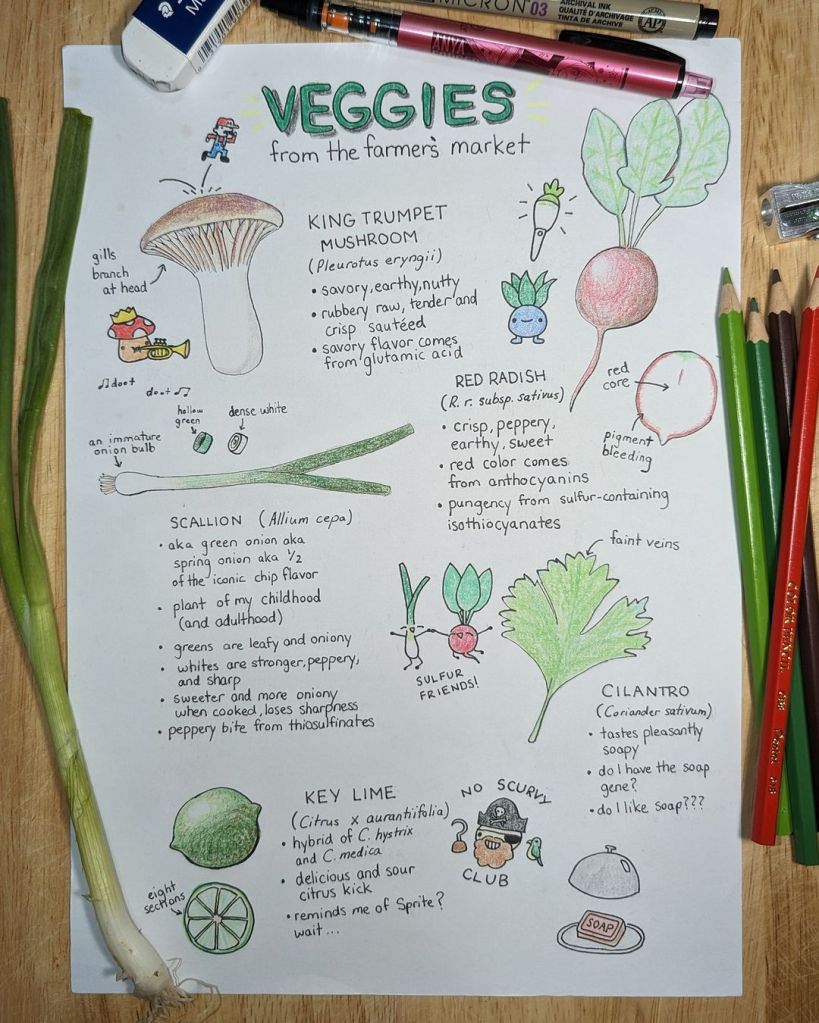 MICRON® 03
ARCHIVAL INK
QUALITÉ D'ARCHIVAGE
TINTA DE ARCHIVO
AP
VEGGIES
from the farmer's market
KING TRUMPET
MUSHROOM
(Pleurotus eryngii)
• savory, earthy, nutty
• rubbery raw, tender and
crisp sautéed
• savory flavor comes
from glutamic acid
gills
branch
at head
♫ doot
doot ♫
RED RADISH
(R. r. subsp. sativus)
• crisp, peppery,
earthy, sweet
• red color comes
from anthocyanins
• pungency from sulfur-containing
isothiocyanates
red
core
pigment
bleeding
hollow
green
dense white
an immature
onion bulb
SCALLION (Allium cepa)
• aka green onion aka
spring onion aka 1/2
of the iconic chip flavor
• plant of my childhood
(and adulthood)
• greens are leafy and oniony
• whites are stronger, peppery,
and sharp
• sweeter and more oniony
when cooked, loses sharpness
• peppery bite from thiosulfinates
SULFUR
FRIENDS!
faint veins
CILANTRO
(Coriander sativum)
• tastes pleasantly
soapy
• do I have the soap
gene?
• do I like soap???
SOAP
KEY LIME
(Citrus x aurantiifolia)
• hybrid of C. hystrix
and C. medica
• delicious and sour
citrus kick
• reminds me of Sprite?
wait...
eight
sections
NO SCURVY
CLUB